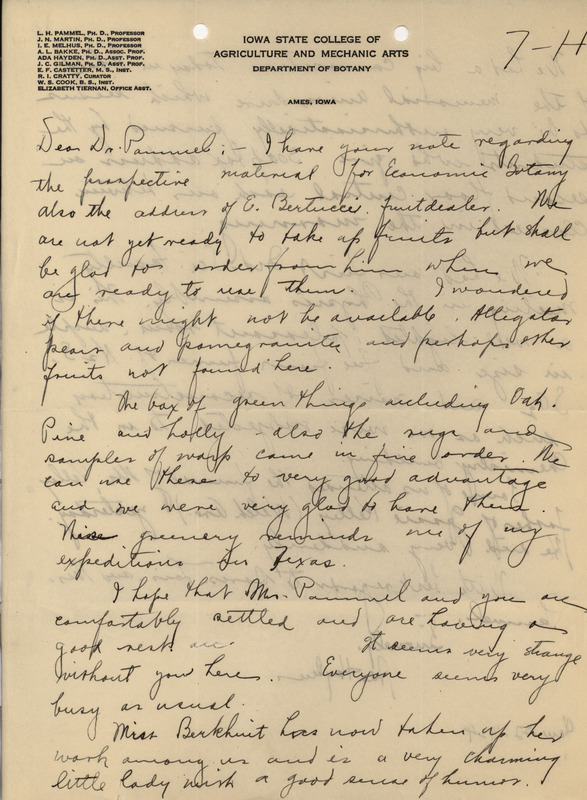 L. H. PAMMEL, PH. D., PROFESSOR
J. N. MARTIN, PH. D., PROFESSOR
I. E. MELHUS, PH. D., PROFESSOR
A. L. BAKKE, PH. D., ASSOC. PROF.
ADA HAYDEN, PH. D., ASST. PROF.
J. C. GILMAN, PH. D., ASST. PROF.
E. F. CASTETTER, M. S., INST.
R. I. CRATTY, CURATOR
W. S. COOK, B. S., INST.
ELIZABETH TIERNAN, OFFICE ASST.
IOWA STATE COLLEGE OF
AGRICULTURE AND MECHANIC ARTS
DEPARTMENT OF BOTANY
AMES, IOWA
7-H
Dear Dr. Pammel; - I have your note regarding
the prospective material for Economic Botany
also the address of E. Bertucci, fruitdealer. We
are not yet ready to take up fruits but shall
be glad to order from him when we
are ready to use them. I wondered
if there might not be available. Alligator
pears and pomegranites and perhaps other
fruits not found here.
The box of green things including Oak.
Pine and holly - also the and
samples of came in fine order. We
can use these to very good advantage
and we were very glad to have them.
This greenery reminds me of my
expeditions in Texas.
I hope that Mrs. Pammel and you are
comfortably settled and are having a
good rest. It seems very strange
without you here. Everyone seems very
busy as usual.
Miss has now taken up her
work among us and is a very charming
little lady with a good sense of humor.